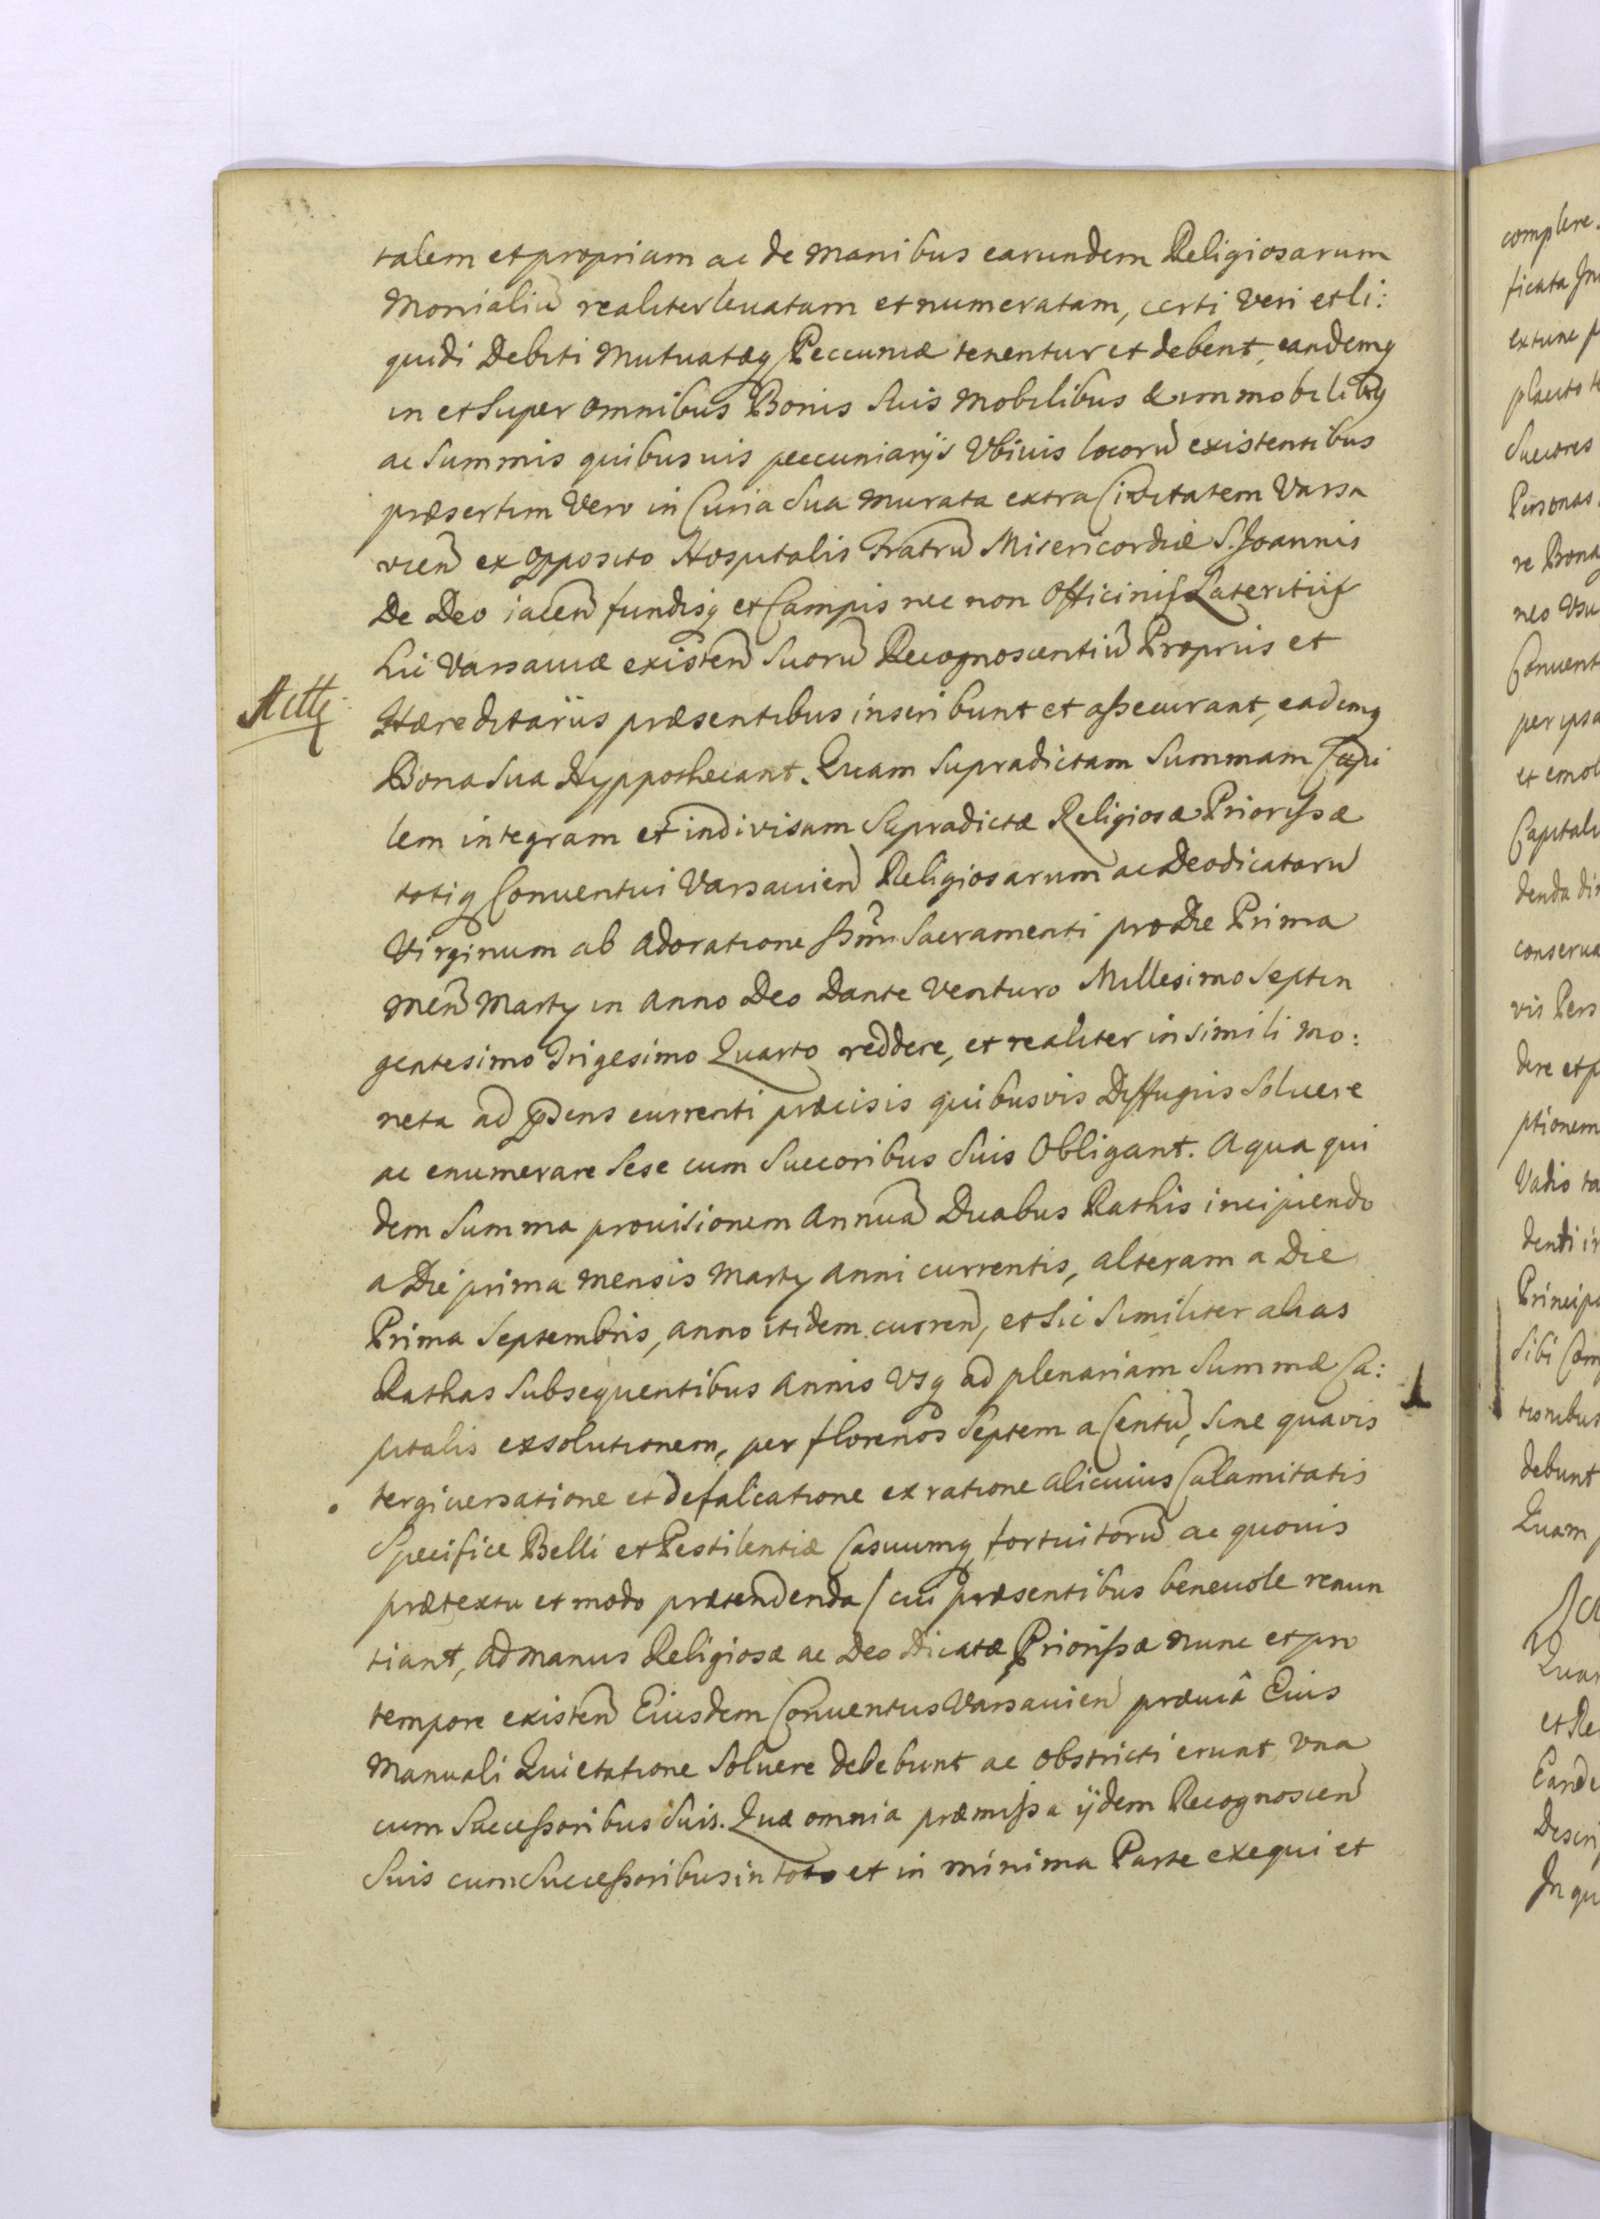 talem et propriam ac de manibus earundem Religiosarum
Monialiũ realiter levatam et numeratam, certi veri et li:
quidi Debiti mutuatæq Peccuniæ tenentur et debent, eandemq
in et super omnibus Bonis suis mobilibus & immobilibq
ac summis quibusvis peccuniarijs Ubivis locorũ existentibus
præsertim Vero in Curia sua murata extra Civitatem Varsa
vień ex opposito Hospitalis Fratrũ Misericordiæ S. Joannis
De Deo iaceń fundisq et Campis nec non Officinis Lateritiis
hic Varsaviæ existeń suorũ Recognoscentiũ Propriis et
Hæreditariis præsentibus inscribunt et assecurant, eademq
Bona sua Hyppothecant. Quam supradictam summam Capi
lem integram et indivisam supradictæ Religiosæ Priorissæ
totiq Conventui Varsavień Religiosarum ac Deodicatarũ
Virginum ab adoratione SSmi Sacramenti pro Die Prima
Meń Martij in Anno Deo Dante Venturo Millesimo Septin
gentesimo Trigesimo Quarto reddere, et realiter in simili mo:
neta ad pńsens currenti præcisis quibusvis Diffugiis solvere
ac enumerare sese cum succoribus suis Obligant. A qua qui
dem summa provisionem Annuã Duabus Rathis incipiendo
a Die prima mensis Martij Anni currentis, alteram a Die
Prima Septembris, anno itidem curreń, et sic similiter alias
Rathas subsequentibus Annis Usq ad plenariam summæ Ca:
pitalis exsolutionem, per florenos septem a Centũ, sine quavis
tergiversatione et defalcatione ex ratione alicuius Calamitatis
Specifice Belli et Pestilentiæ Casuumq fortuitorũ ac quovis
prætextu et modo prætendenda / cui præsentibus benevole renun
tiant, ad manus Religiosæ ac Deo Dicatæ Priorissæ nunc et pro
tempore existeń Eiusdem Conventus Varsavień præviâ Eius
Manuali Quietatione solvere debebunt ac obstricti erunt una
cum successoribus suis. Quæ omnia præmissa ijdem Recognosceń
suis cum successoribus in toto et in minima Parte exequi et
complere.
ficata
extunc
placito
Succores
Personas
re Bona
neo Usu
Convent
per ipsa
et emol
Capitali
denda
conserva
vis Pers
dere et p
ptionem
Vadio ta
denti
Principa
sibi Com
tionibus
debunt
Quam
Quar
et Re
Eande
Descri
In qu